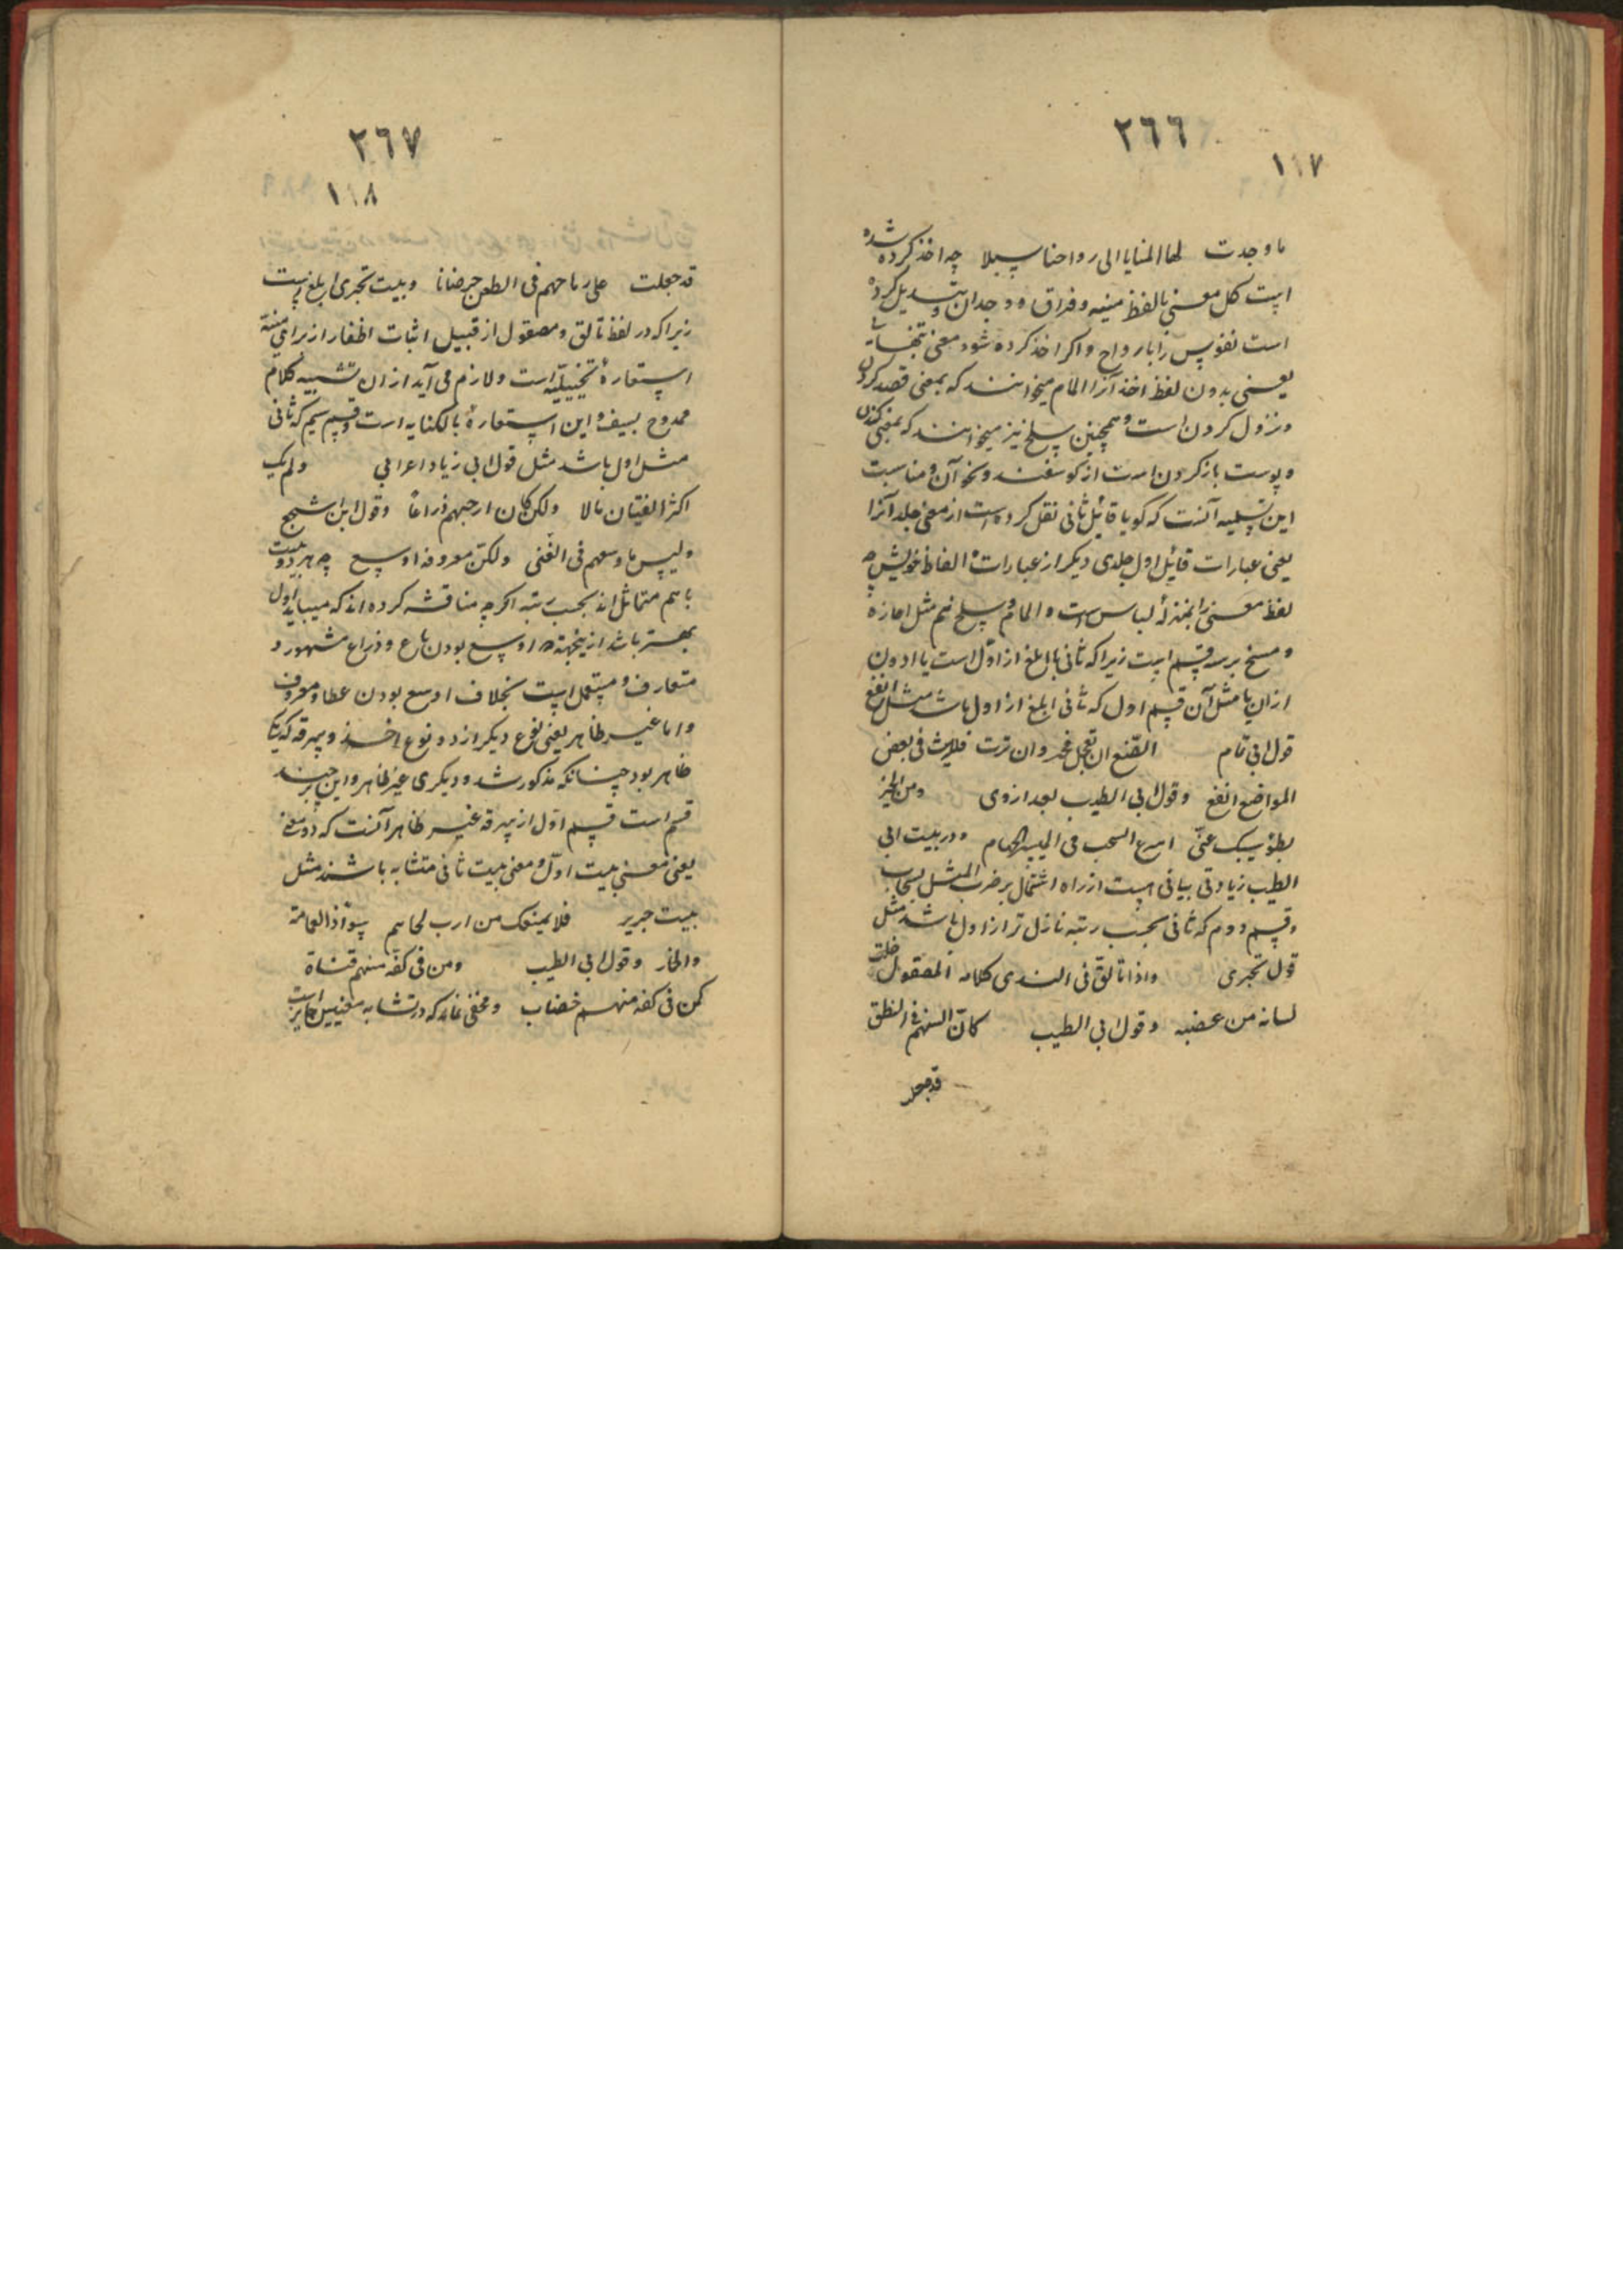 ٢٦٦
١١٧
ما وجدت لها المنایا الی رواحنا سبیلا چه اخذ کرده شده
است کل معنی با لفظ منیه و فراق و وجدان و تبدیل کرده
است نفوس را بارواح و اکر اخذ کرده شود معنی تنها
یعنی بدون لفظ اخذ آنرا المام میخوانند که بمعنی قصد کردن
و نزول کردن است و همچنین سلخ نیز میخوانند که بمعنی کندن
و پوست باز کردن است از کوسفند و نحو آن و مناسبت
این تسمیه آنست که کویا قائل ثانی نقل کرده است از معنی جلد آنرا
یعنی عبارات قائل اول جلدی دیکر از عبارات و الفاظ خویش چه
لفظ معنی را بمنزلهٔ لباس است و المام و سلخ نیم مثل اغاره
و مسخ بر سه قسم است زیرا که ثانی یا ابلغ از اول است یا ادون
از آن یا مثل آن قسم اول که ثانی ابلغ از اول باشد مثل
قول ابی تمام الصنع ان تعجل فخیر وان ترث فلریث فی بعض
المواضع انفع و قول ابی الطیب بعد از وی ومن الخیر
بطؤ سیبک عنی اسرع السحب فی المسیر الجهام و در بیت ابی
الطیب زیادتی بیانی است از راه اشتمال بر ضرب المثل بسحاب
و قسم دوم که ثانی بحسب رتبه نازل تر از اول باشد مثل
قول بحتری واذا تالق فی الندی کلامه المصقول خلت
لسانه من عضبه و قول ابی الطیب کان السنهم فی النطق
قد جعلت
٢٦٧
١١٨
قد جعلت علی رماحهم فی الطعن خرصانا و بیت بحتری ابلغ است
زیرا که در لفظ تالق و مصقول از قبیل اثبات اظفار از برای منیة
استعارهٔ تخییلیه است و لازم می آید از آن تشبیه کلام
ممدوح بسیف و این استعارهٔ بالکنایه است و قسم سیم که ثانی
مثل اول باشد مثل قول ابی زیاد اعرابی ولم یک
اکثر الفتیان مالا ولکن کان ارحبهم ذراعا و قول اشجع
ولیس باوسعهم فی الغنی ولکن معروفه اوسع چه هر دو بیت
با هم متماثل اند بحسب رتبه اکرچه مناقشه کرده اند که میباید اول
بهتر باشد ازینجهة که اوسع بودن باع و ذراع مشهور و
متعارف و مستعمل است بخلاف اوسع بودن عطا و معروف
و اما غیر ظاهر یعنی نوع دیکر از دو نوع اخذ و سرقه که یک
ظاهر بود چنانکه مذکور شد و دیکری غیر ظاهر و این بر چند
قسم است قسم اول از سرقه غیر ظاهر آنست که دو معنی
یعنی معنی بیت اول و معنی بیت ثانی متشابه باشند مثل
بیت جریر فلا یمنعک من ارب لحاهم سواء ذو العمامة
والخمار و قول ابی الطیب ومن فی کفه منهم قناة
کمن فی کفه منهم خضاب و مخفی نماند که در تشابه معنیین جایز است